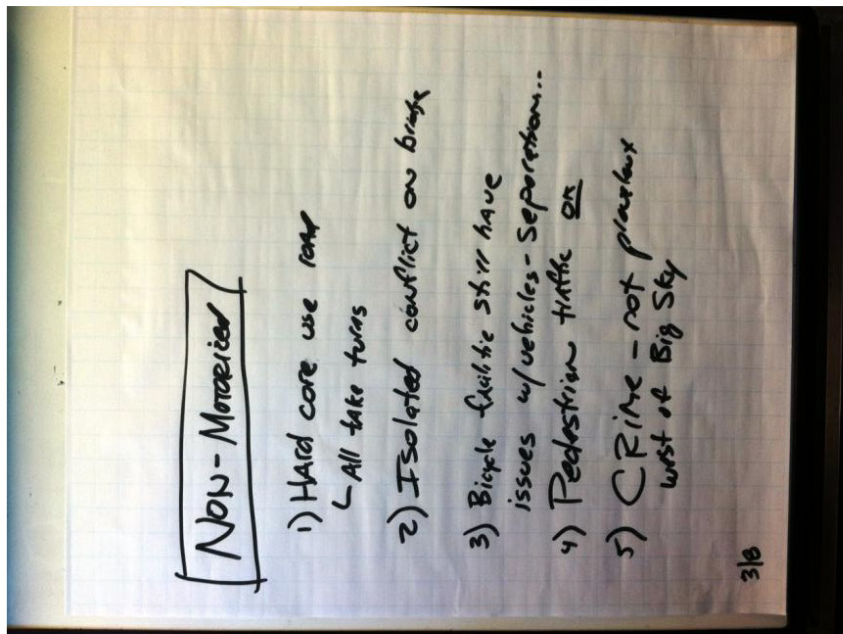 NON-MOTORIZED
1) HARD CORE USE ROAD
All take turns
2) ISolated conflict on bridge
3) Bicycle facilitie still have
issues w/ vehicles - Separation..
4) Pedestrian traffic OK
5) CRIME - not
west of Big Sky
3/8